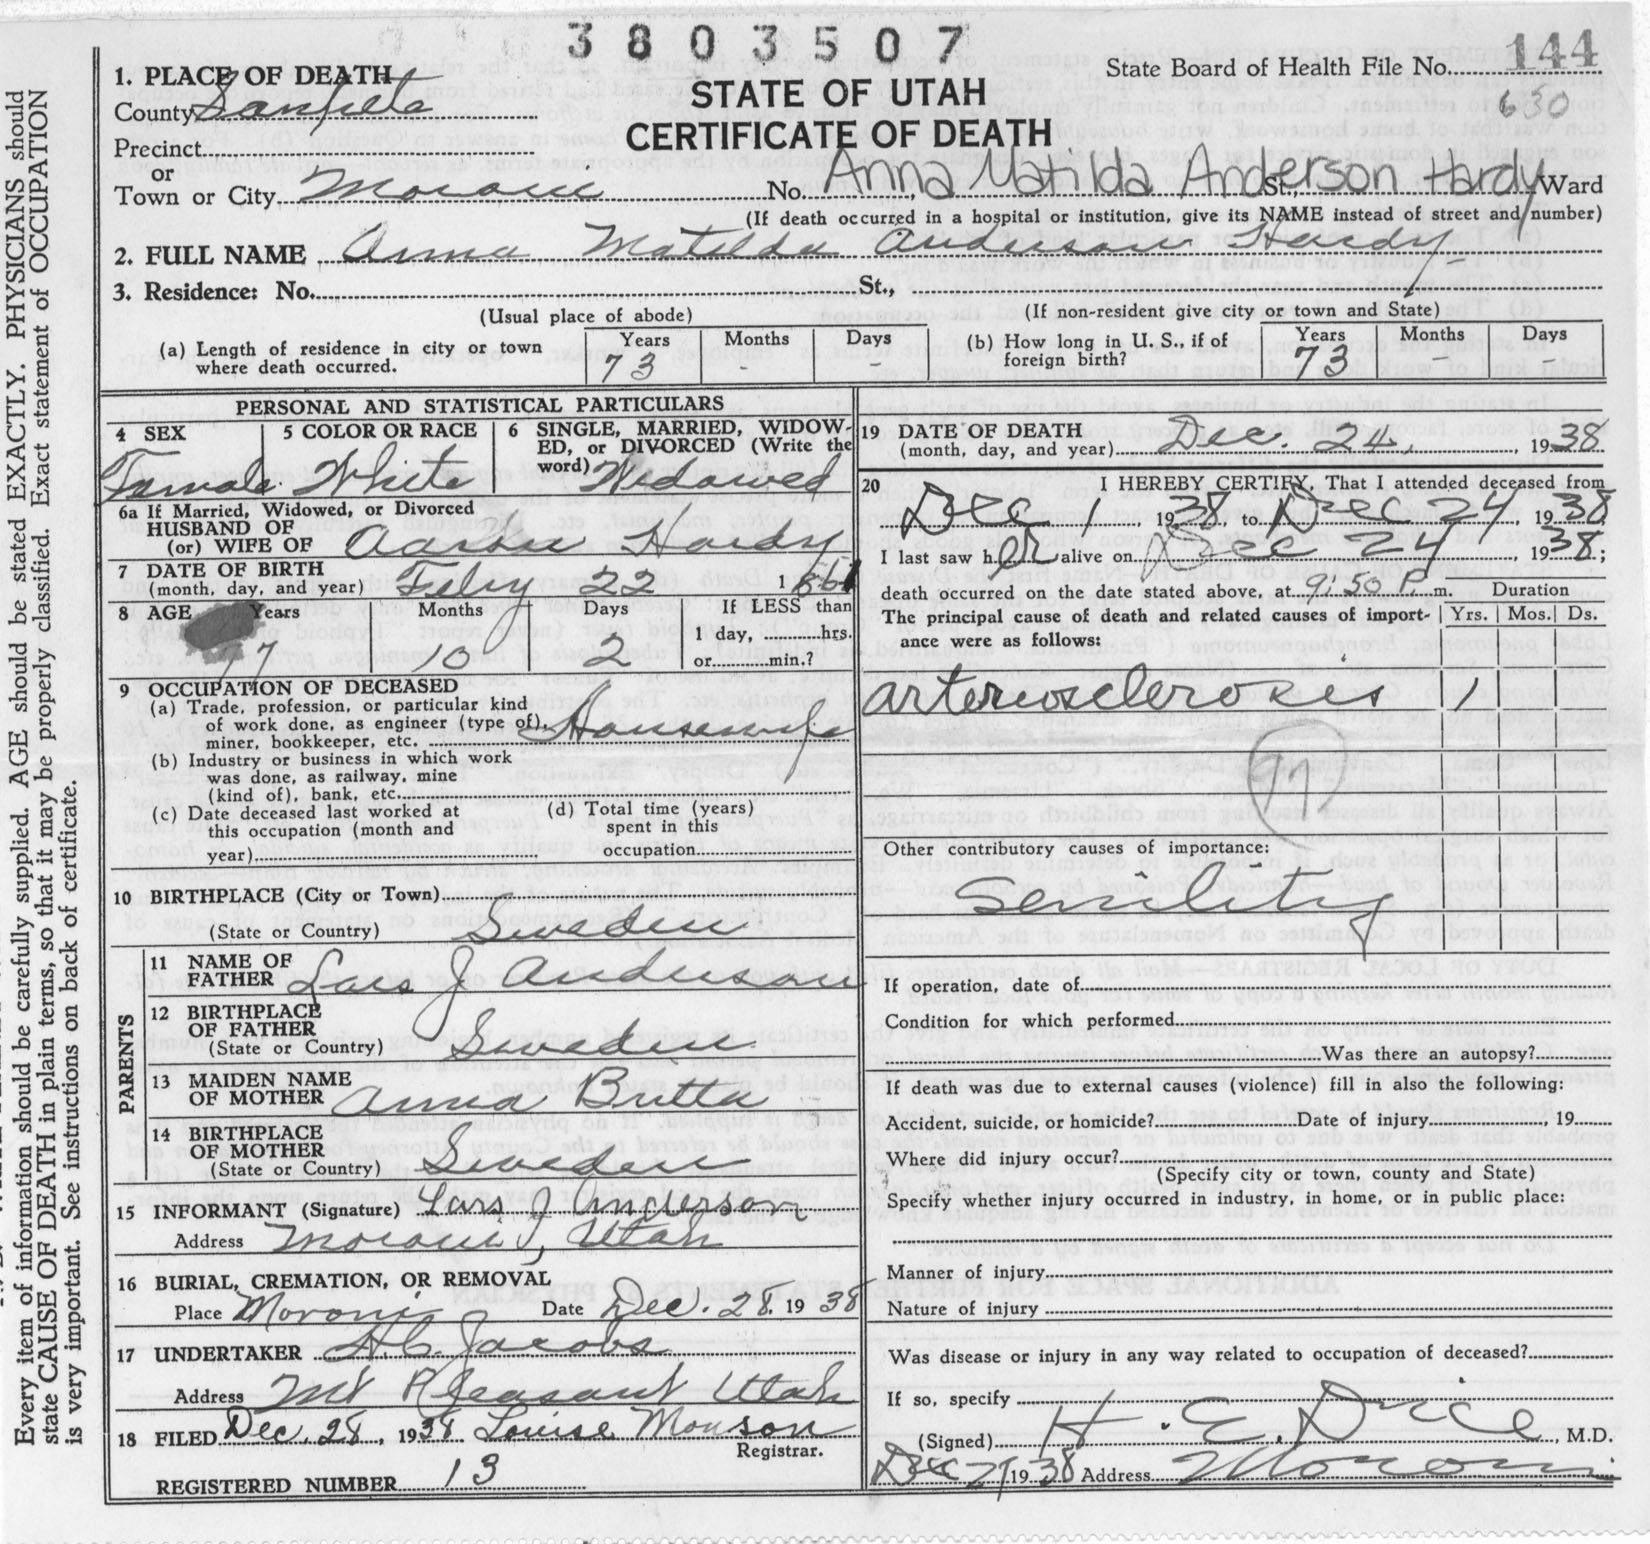 3803507
State Board of Health File No. 144
650
STATE OF UTAH
CERTIFICATE OF DEATH
1. PLACE OF DEATH
County Sanpete
Precinct
or
Town or City Moroni No. St., Ward
Anna Matilda Anderson Hardy
(If death occurred in a hospital or institution, give its NAME instead of street and number)
2. FULL NAME Anna Matilda Anderson Hardy
3. Residence: No. St.,
(Usual place of abode) (If non-resident give city or town and State)
(a) Length of residence in city or town where death occurred. Years 73 Months - Days
(b) How long in U. S., if of foreign birth? Years 73 Months - Days -
PERSONAL AND STATISTICAL PARTICULARS
4 SEX Female
5 COLOR OR RACE White
6 SINGLE, MARRIED, WIDOWED, OR DIVORCED (Write the word) Widowed
6a If Married, Widowed, or Divorced
HUSBAND OF
(or) WIFE OF Aaron Hardy
7 DATE OF BIRTH
(month, day, and year) Feby 22 1861
8 AGE Years 77 Months 10 Days 2 If LESS than
1 day, hrs.
or min.?
9 OCCUPATION OF DECEASED
(a) Trade, profession, or particular kind
of work done, as engineer (type of),
miner, bookkeeper, etc. Housewife
(b) Industry or business in which work
was done, as railway, mine
(kind of), bank, etc.
(c) Date deceased last worked at
this occupation (month and
year)
(d) Total time (years)
spent in this
occupation.
10 BIRTHPLACE (City or Town)
(State or Country) Sweden
PARENTS
11 NAME OF
FATHER Lars J Anderson
12 BIRTHPLACE
OF FATHER
(State or Country) Sweden
13 MAIDEN NAME
OF MOTHER Anna Britta
14 BIRTHPLACE
OF MOTHER
(State or Country) Sweden
15 INFORMANT (Signature) Lars J Anderson
Address Moroni, Utah
16 BURIAL, CREMATION, OR REMOVAL
Place Moroni Date Dec. 28, 1938
17 UNDERTAKER A C Jacobs
Address Mt Pleasant Utah
18 FILED Dec. 28, 1938 Louise Monson
Registrar.
REGISTERED NUMBER 13
19 DATE OF DEATH
(month, day, and year) Dec. 24, 1938
20 I HEREBY CERTIFY, That I attended deceased from
Dec 1 1938, to Dec 24, 1938
I last saw her alive on Dec 24, 1938;
death occurred on the date stated above, at 9:50 P. m. Duration
The principal cause of death and related causes of importance were as follows: Yrs. Mos. Ds.
arteriosclerosis 1
97
Other contributory causes of importance:
Senility
If operation, date of
Condition for which performed
Was there an autopsy?
If death was due to external causes (violence) fill in also the following:
Accident, suicide, or homicide? Date of injury , 19
Where did injury occur?
(Specify city or town, county and State)
Specify whether injury occurred in industry, in home, or in public place:
Manner of injury
Nature of injury
Was disease or injury in any way related to occupation of deceased?
If so, specify
(Signed) H. E. Dice, M.D.
Dec 27 1938 Address Moroni
Every item of information should be carefully supplied. AGE should be stated EXACTLY. PHYSICIANS should
state CAUSE OF DEATH in plain terms, so that it may be properly classified. Exact statement of OCCUPATION
is very important. See instructions on back of certificate.